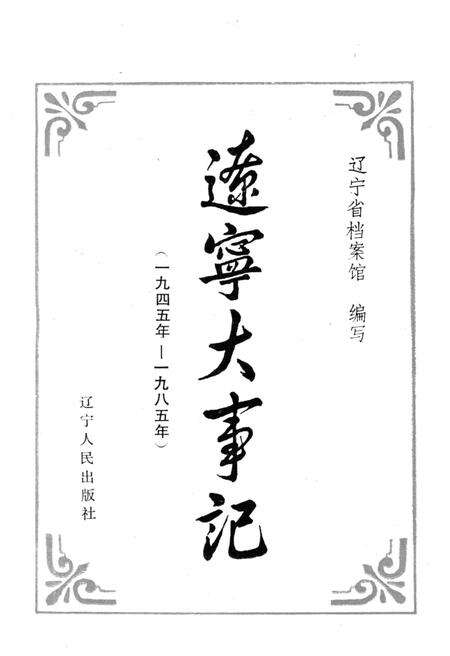 辽宁省档案馆 编写
遼寧大事记
（一九四五年—一九八五年）
辽宁人民出版社